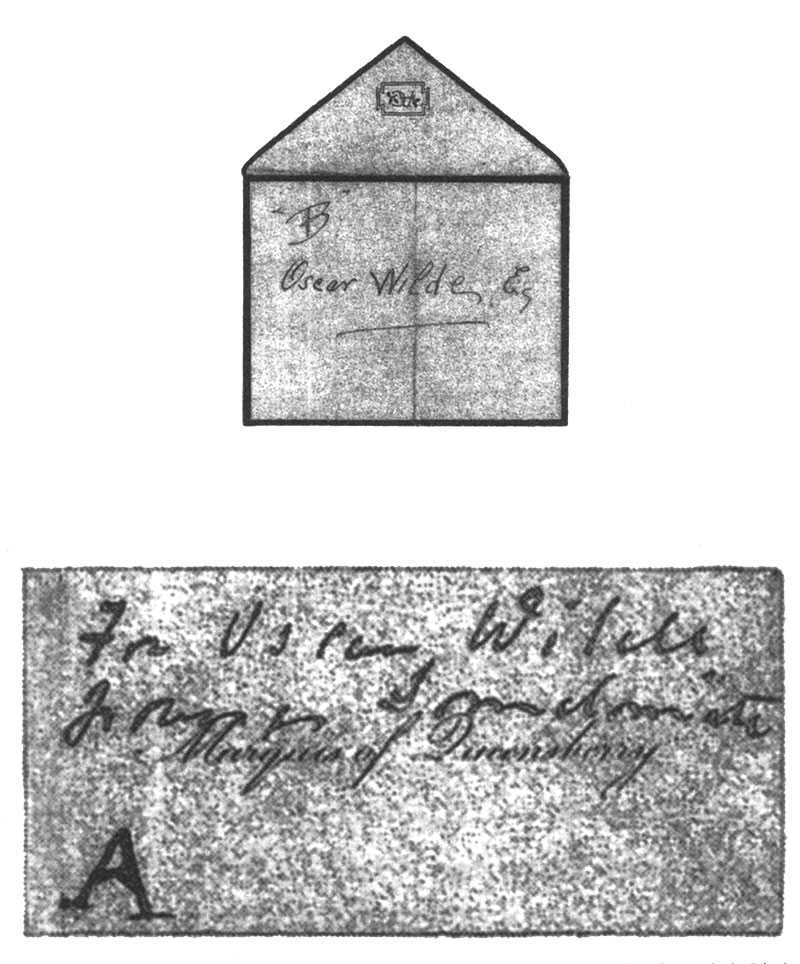 "B"
Oscar Wilde, Esq
For Oscar Wilde
posing Somdomite
Marquis of Queensberry
A